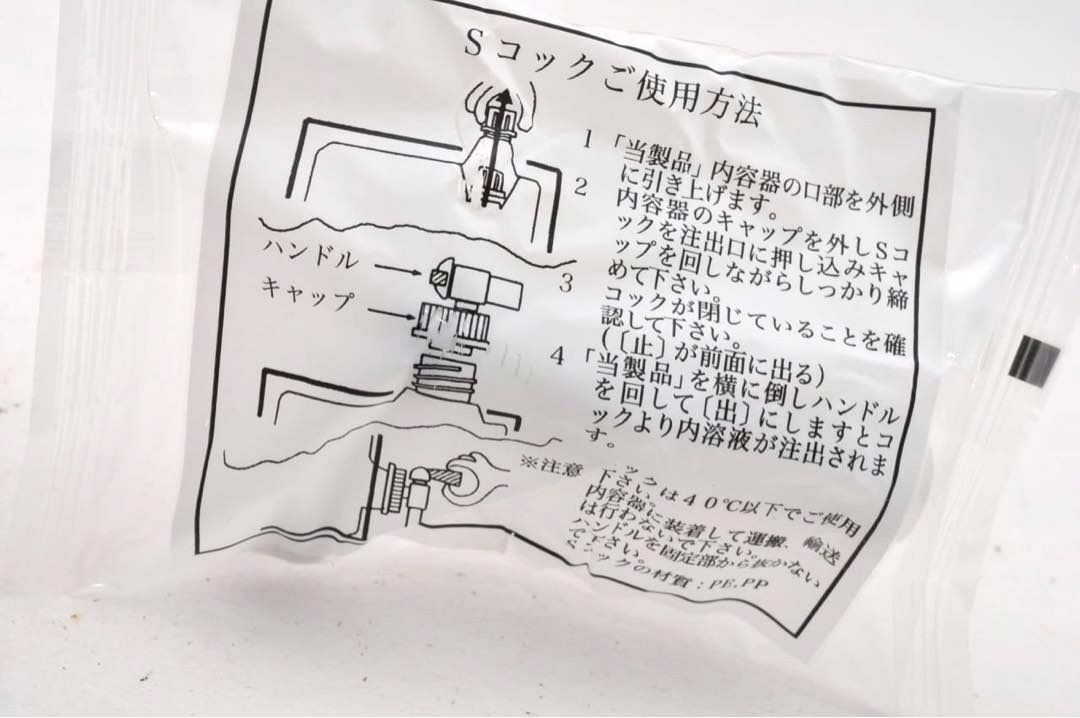 Sコックご使用方法
1 「当製品」内容器の口部を外側
に引き上げます。
2 内容器のキャップを外しSコ
ックを注出口に押し込みキャ
ップを回しながらしっかり締
めて下さい。
3 コックが閉じていることを確
認して下さい。
(〔止〕が前面に出る)
4 「当製品」を横に倒しハンドル
を回して〔出〕にしますとコ
ックより内溶液が注出されま
す。
ハンドル
キャップ
※注意
ックは40℃以下でご使用
下さい。
内容器に装着して運搬、輸送
は行わないで下さい。
ハンドルを固定部から抜かない
で下さい。
Sコックの材質:PE,PP